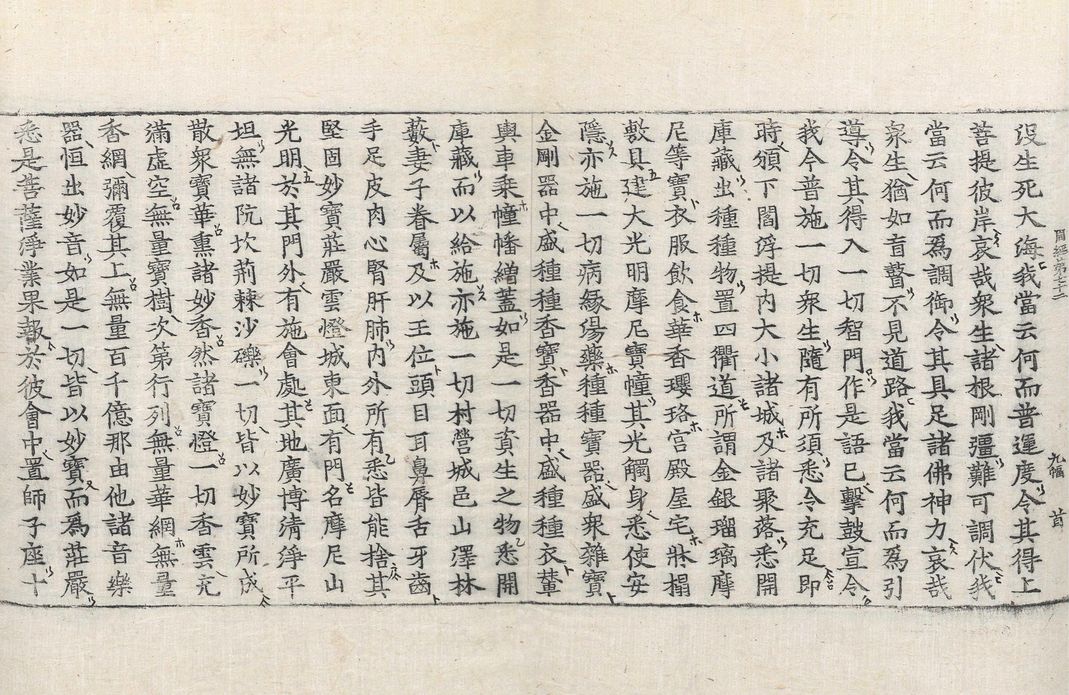 没生死大海我當云何而普運度令其得上
菩提彼岸哀哉衆生諸根剛彊難可調伏我
當云何而爲調御令其具足諸佛神力哀哉
衆生猶如盲瞽不見道路我當云何而爲引
導令其得入一切智門作是語已擊鼓宣令
我今普施一切衆生隨有所須悉令充足即
時頒下閻浮提內大小諸城及諸聚落悉開
庫藏出種種物置四衢道所謂金銀瑠璃摩
尼等寶衣服飲食華香瓔珞宮殿屋宅牀榻
敷具建大光明摩尼寶幢其光觸身悉使安
隱亦施一切病緣湯藥種種寶器盛衆雜寶
金剛器中盛種種香寶香器中盛種種衣輦
輿車乘幢幡繒蓋如是一切資生之物悉開
庫藏而以給施亦施一切村營城邑山澤林
藪妻子眷屬及以王位頭目耳鼻脣舌牙齒
手足皮肉心腎肝肺內外所有悉皆能捨其
堅固妙寶莊嚴雲燈城東面有門名摩尼山
光明於其門外有施會處其地廣博清淨平
坦無諸阬坎荊棘沙礫一切皆以妙寶所成
散衆寶華熏諸妙香然諸寶燈一切香雲充
滿虛空無量寶樹次第行列無量華網無量
香網彌覆其上無量百千億那由他諸音樂
器恒出妙音如是一切皆以妙寶而爲莊嚴
悉是菩薩淨業果報於彼會中置師子座十